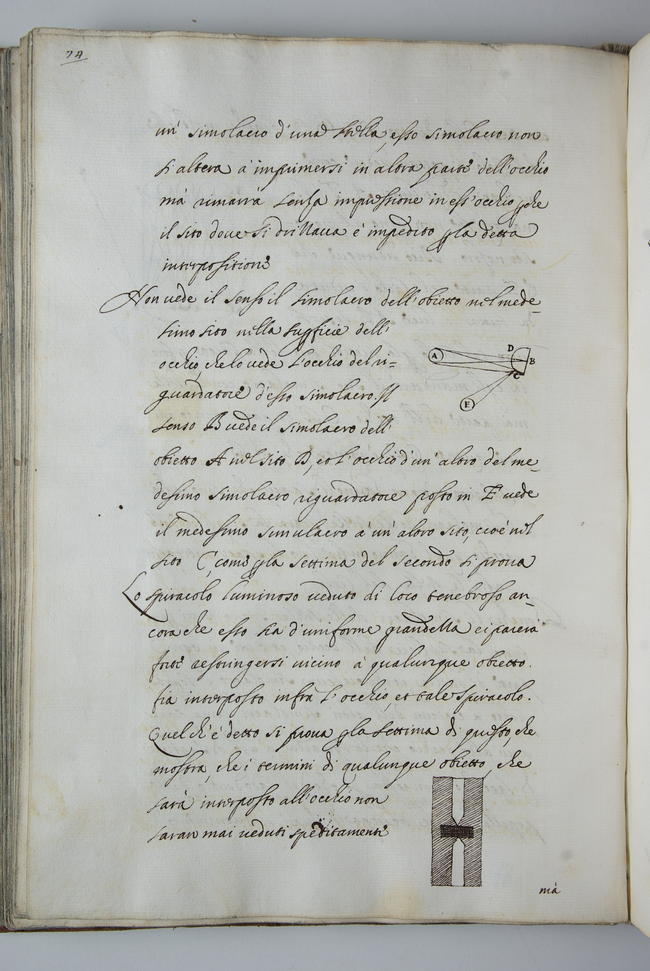 74
un' simolacro d'una stella, esso simolacro non
s'altera à imprimersi in altra parte dell'occhio
mà rimarra senza impressione in ess' occhio pche
il sito doue si drizzaua è impedito pla detta
interpositione
Non uede il senso il simolacro dell'obietto nel mede-
simo sito nella supficie dell'
occhio, che lo uede l'occhio del ri-
guardatore d'esso simolacro. Il
senso B uede il simolacro dell'
obietto A nel sito D, et l'occhio d'un' altro del me-
desimo simolacro riguardatore posto in E uede
il medesimo simulacro à un' altro sito, cioè nel
sito C, come pla settima del secondo si proua
Lo spiracolo luminoso ueduto di loco tenebroso an-
cora che esso sia d'uniforme grandezza ei parerà
forte restringersi uicino à qualunque obietto
fia interposto infra l'occhio, et tale spiracolo.
Quel ch'è detto si proua pla settima di questo, che
mostra, che i termini di qualunque obietto, che
sarà interposto all'occhio non
saran mai ueduti speditamente
A
D
B
C
E
mà